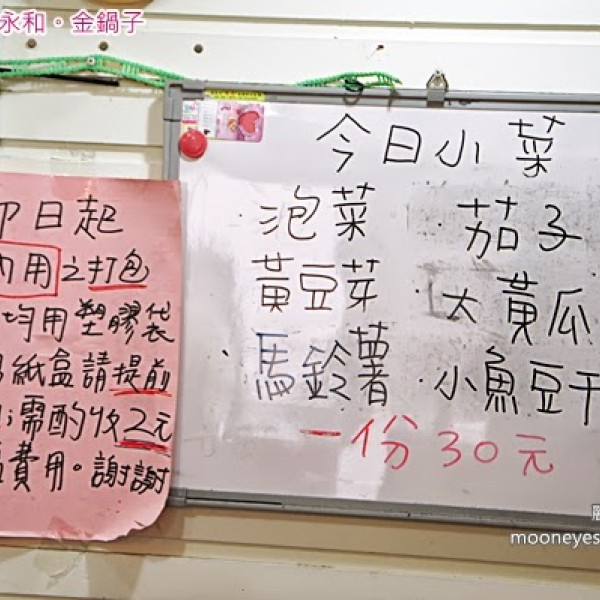 永和。金鍋子
今日小菜
·泡菜 ·茄子
黃豆芽 ·大黃瓜
·馬鈴薯 ·小魚豆干
一份30元
即日起
內用之打包
均用塑膠袋
紙盒請提前
需酌收2元
費用。謝謝
mooneyes